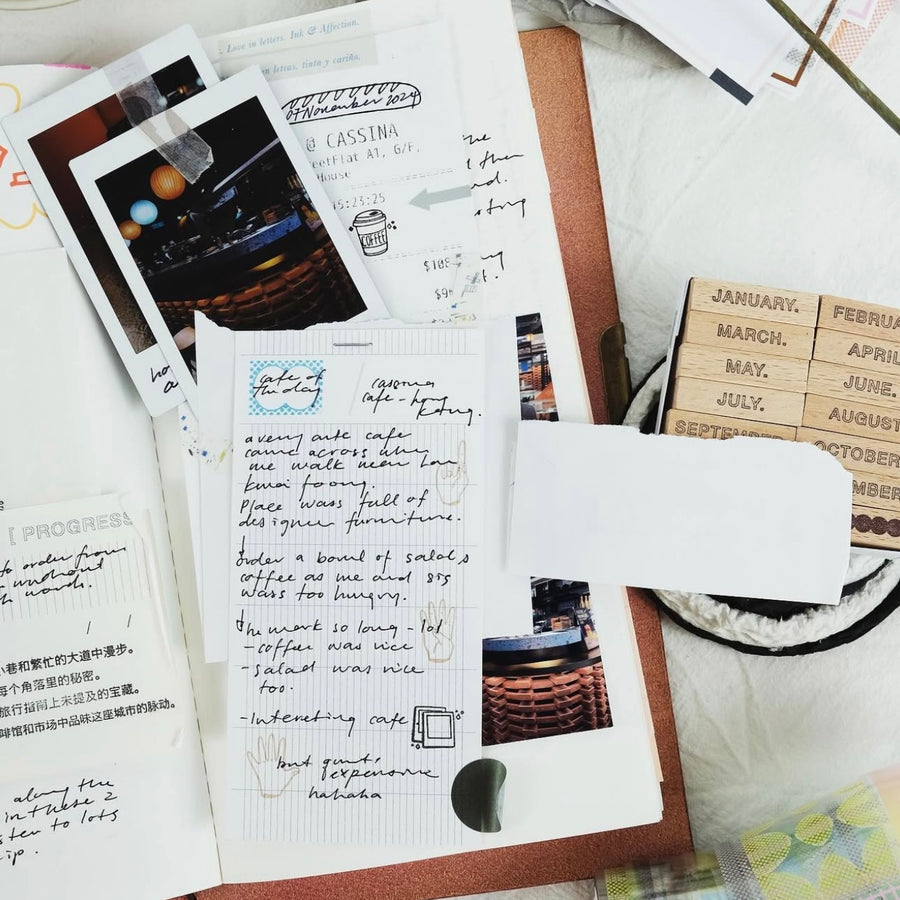 . Love in letters. Ink & Affection.
on letras, tinto y cariño.
07 November 2024
@ CASSINA
reetFlat A1, G/F,
House
15:23:25
COFFEE
$108
$9
JANUARY.
FEBRUA
MARCH.
APRIL
MAY.
JUNE.
JULY.
AUGUST
SEPTEMBER
OCTOBER
MBER
cafe of
the day
cassina
cafe - hong
kong.
a very cute cafe
came across why
me walk near Lan
kwai foong.
Place wass full of
designer furniture.
order a bowl of salads
coffee as me and sis
wass too hungry.
The mark so long - lol
- coffee was nice
- salad was nice
too.
- Intereting cafe
but quit,
expensive
hahaha
[ PROGRESS
to order from
without
words.
/ /
小巷和繁忙的大道中漫步。
每个角落里的秘密。
旅行指南上未提及的宝藏。
啡馆和市场中品味这座城市的脉动。
along the
in these 2
sten to lots
ip.